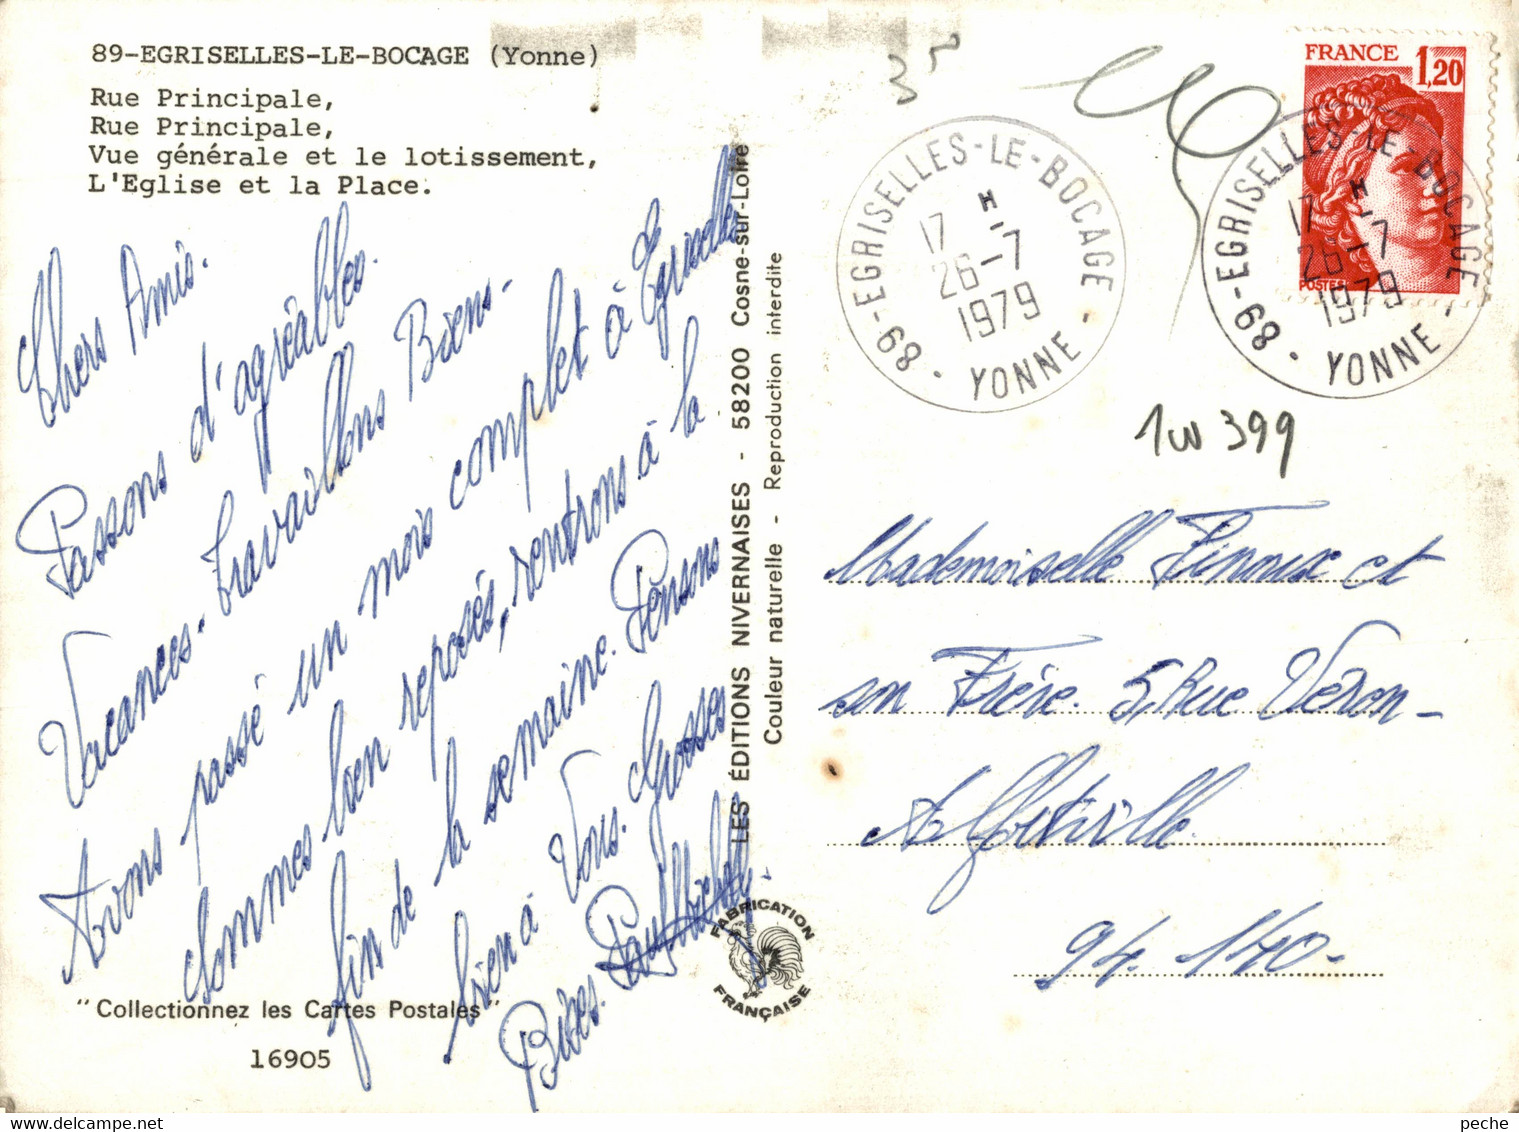 89-EGRISELLES-LE-BOCAGE (Yonne)
Rue Principale,
Rue Principale,
Vue générale et le lotissement,
L'Eglise et la Place.
Chers Amis.
Passons d'agréables
Vacances. travaillons Biens-
Avons passé un mois complet à Egriselles
sommes bien reposés, rentrons à la
fin de la semaine. Pensons
bien à Vous. Grosses
Bises.
"Collectionnez les Cartes Postales"
16905
LES ÉDITIONS NIVERNAISES - 58200 Cosne-sur-Loire
Couleur naturelle - Reproduction interdite
FABRICATION FRANÇAISE
FRANCE
1,20
POSTES
89-EGRISELLES-LE-BOCAGE
17 H
26-7
1979
YONNE
89-EGRISELLES-LE-BOCAGE
17 H
26-7
1979
YONNE
1w 399
Mademoiselle et
son Frère. 5, Rue Véron-
Alfortville
94.140-
peche